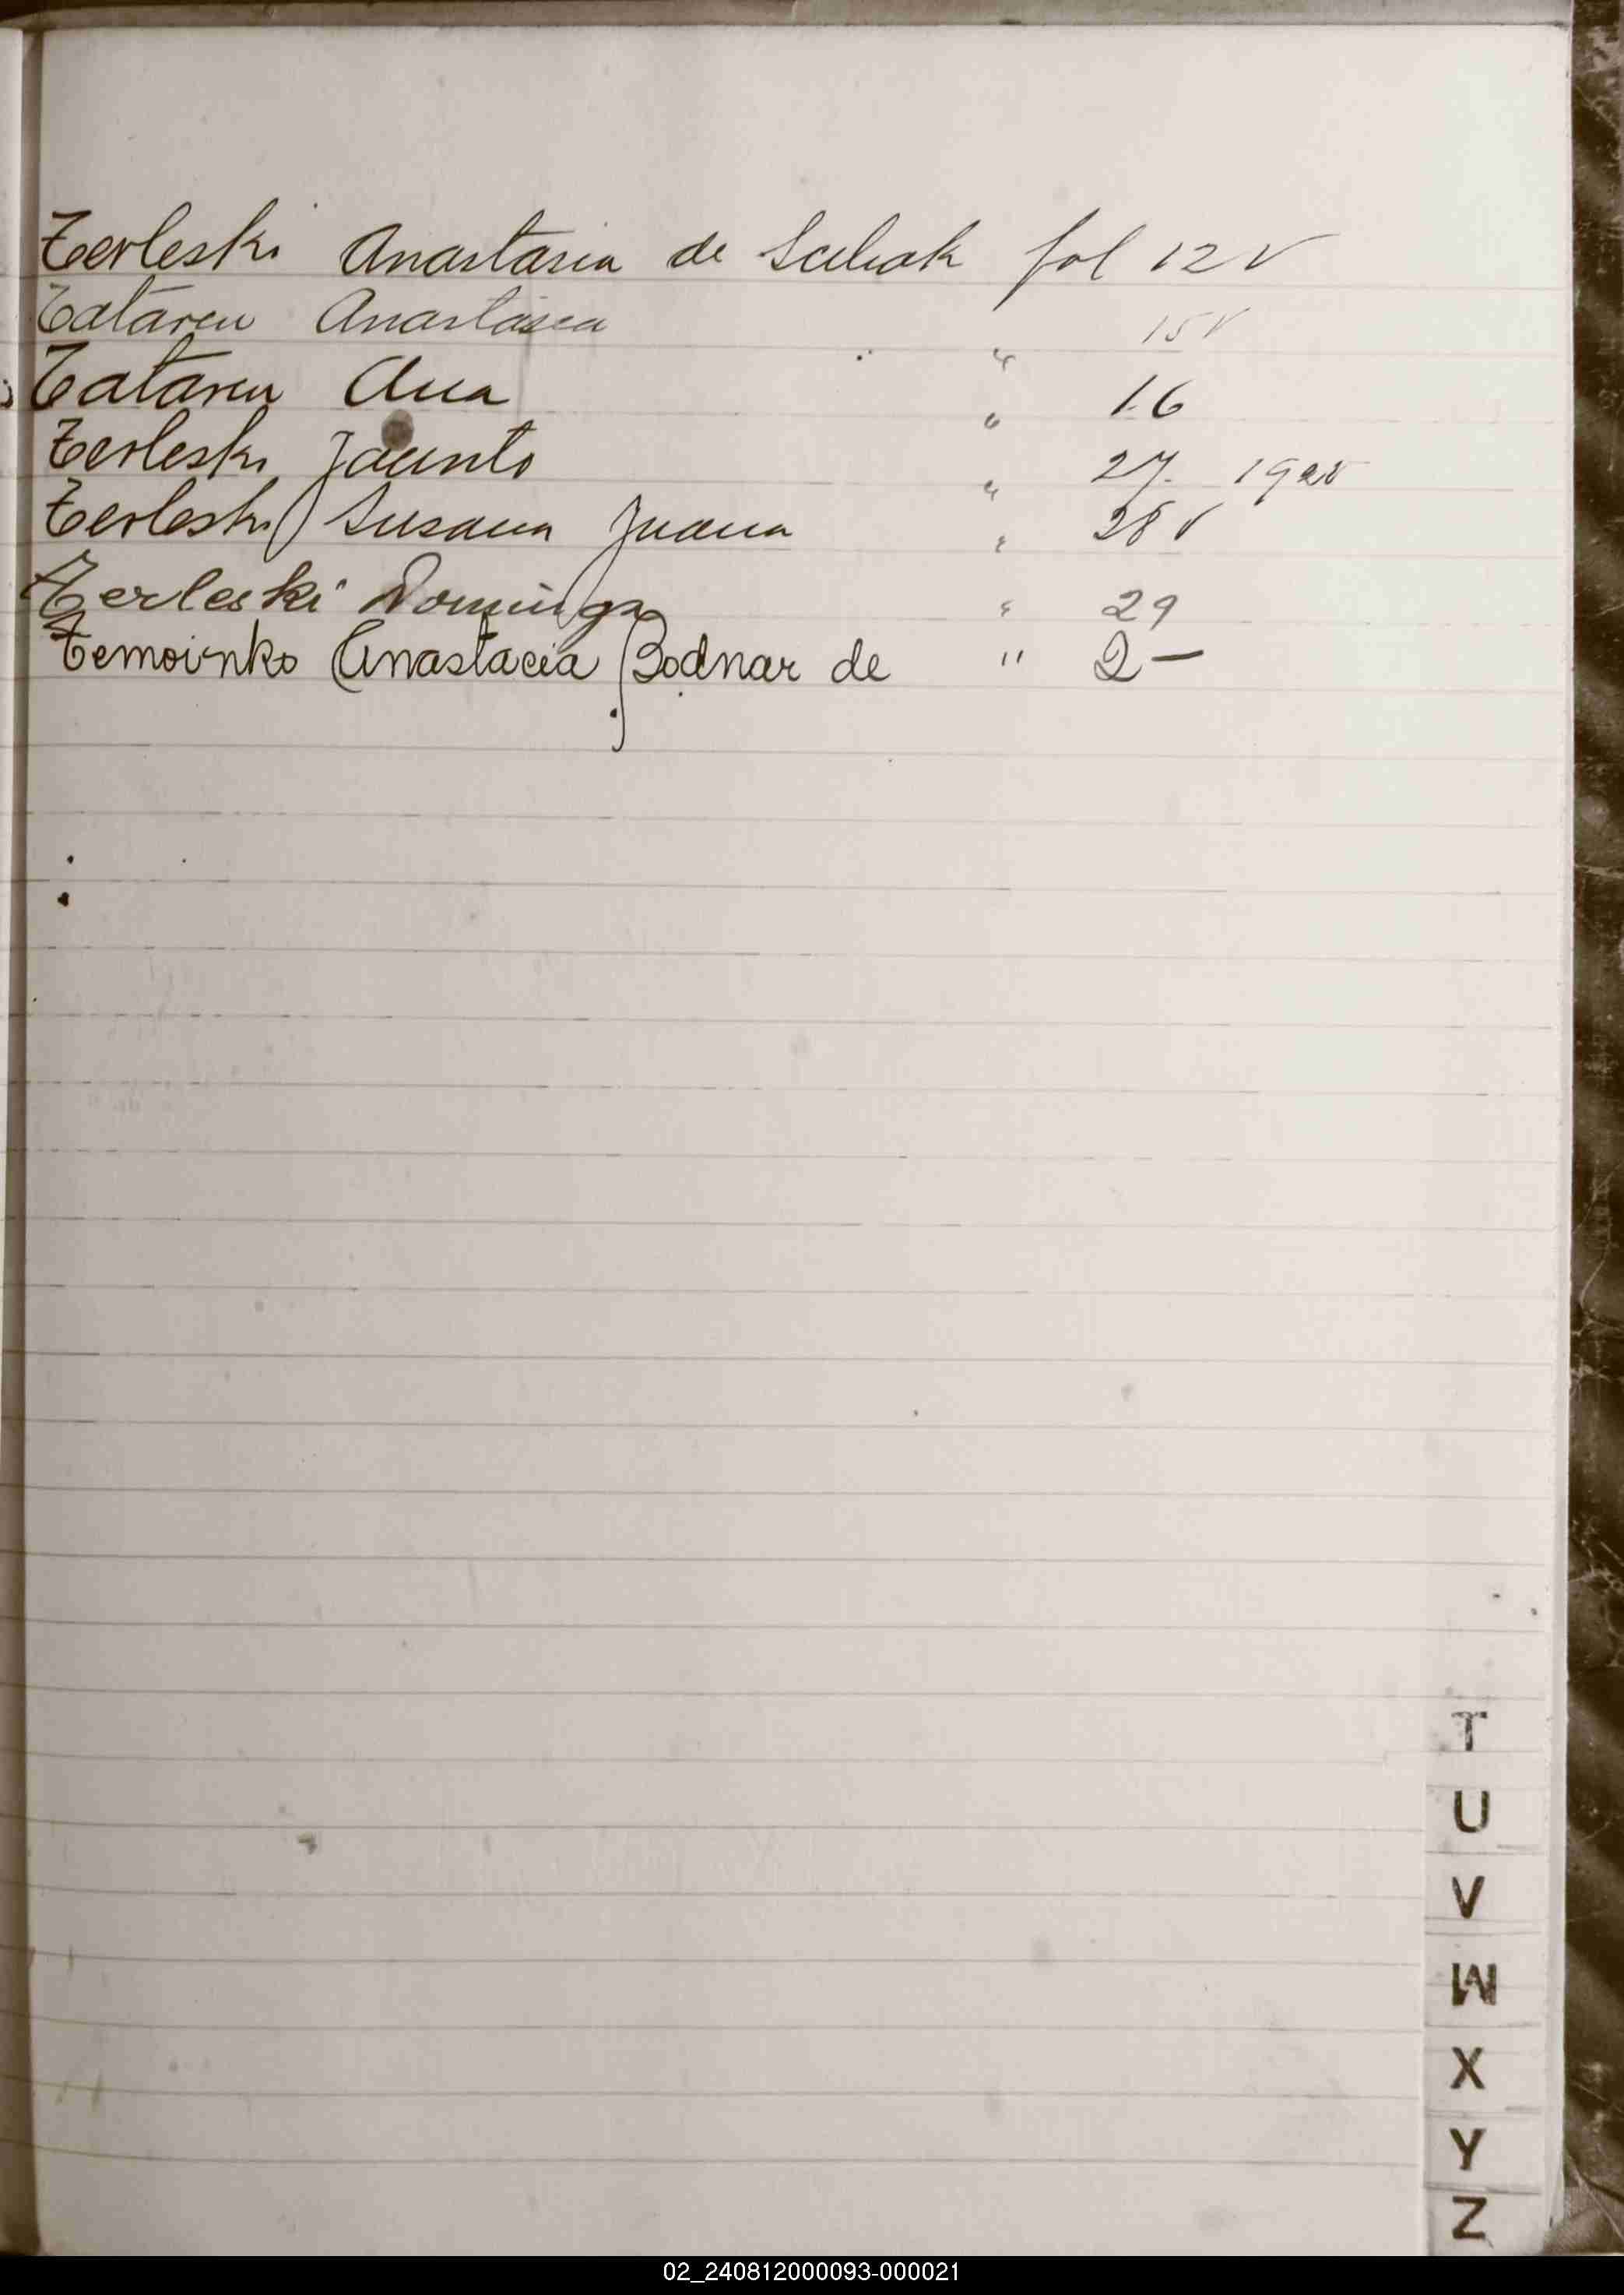 Terleski Anastasia de fol 12 V
Tataren Anastasia 15 V
Tataren Ana " 16
Terleski Jacinto " 27. 1920
Terleski Susana Juana " 28 V
Terleski Dominga " 29
Temoinko Anastacia Bodnar de " 2 —
T
U
V
W
X
Y
Z
02_240812000093-000021